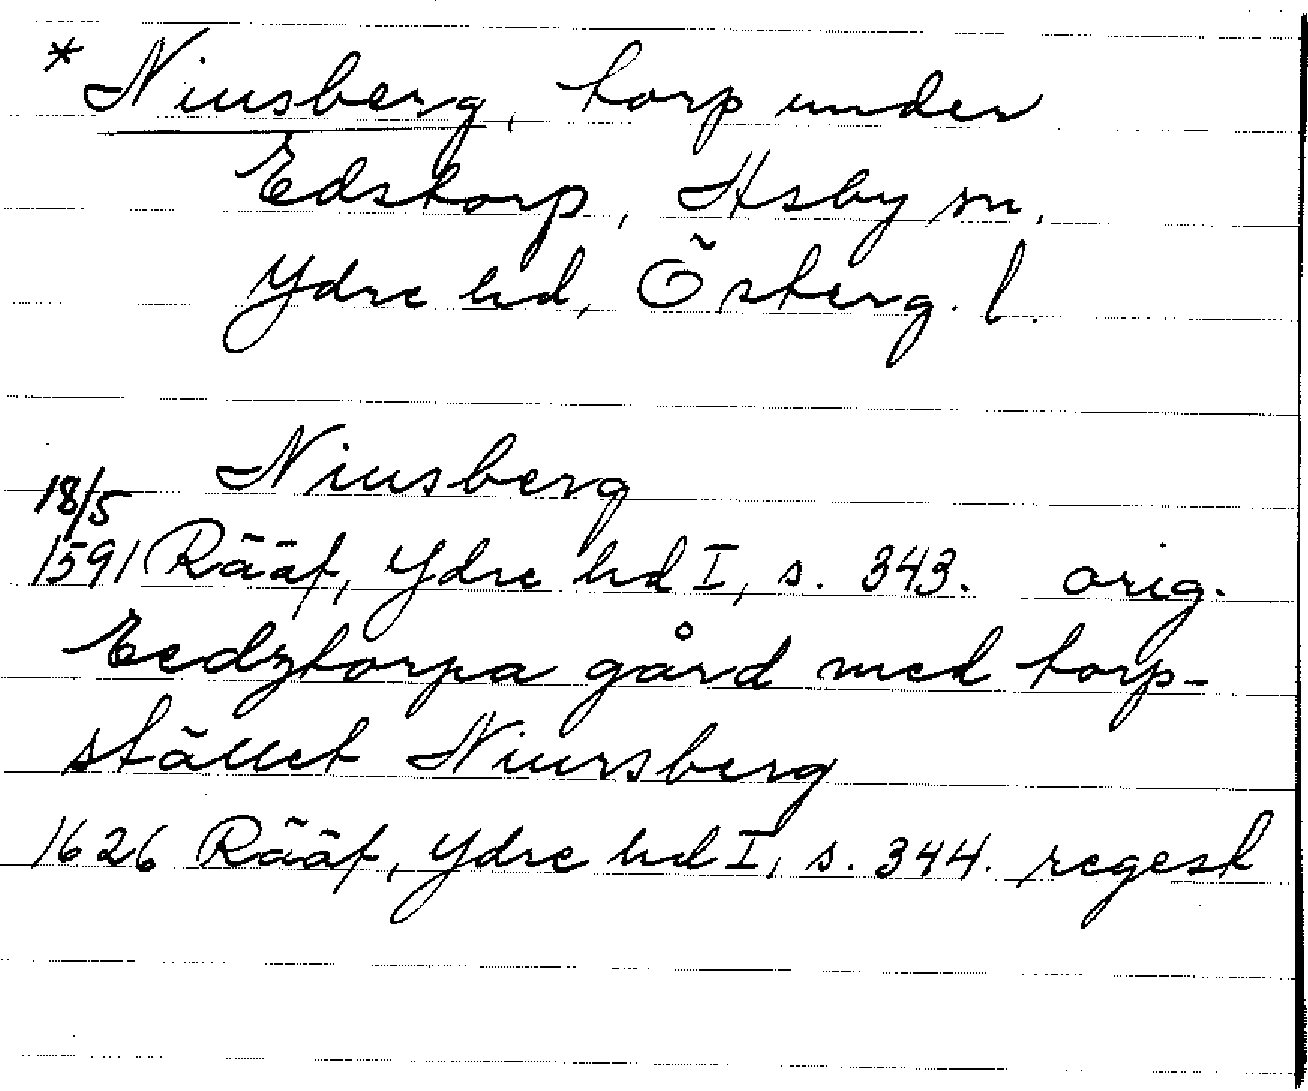 * Niusberg, torp under
Edstorp, Asby sn,
Ydre hd, Österg. l.
Niusberg
18/5
1591 Rääf, Ydre hd I, s. 343. orig.
Eedztorpa gård med torp-
stället Niursberg
1626 Rääf, Ydre hd I, s. 344. regest